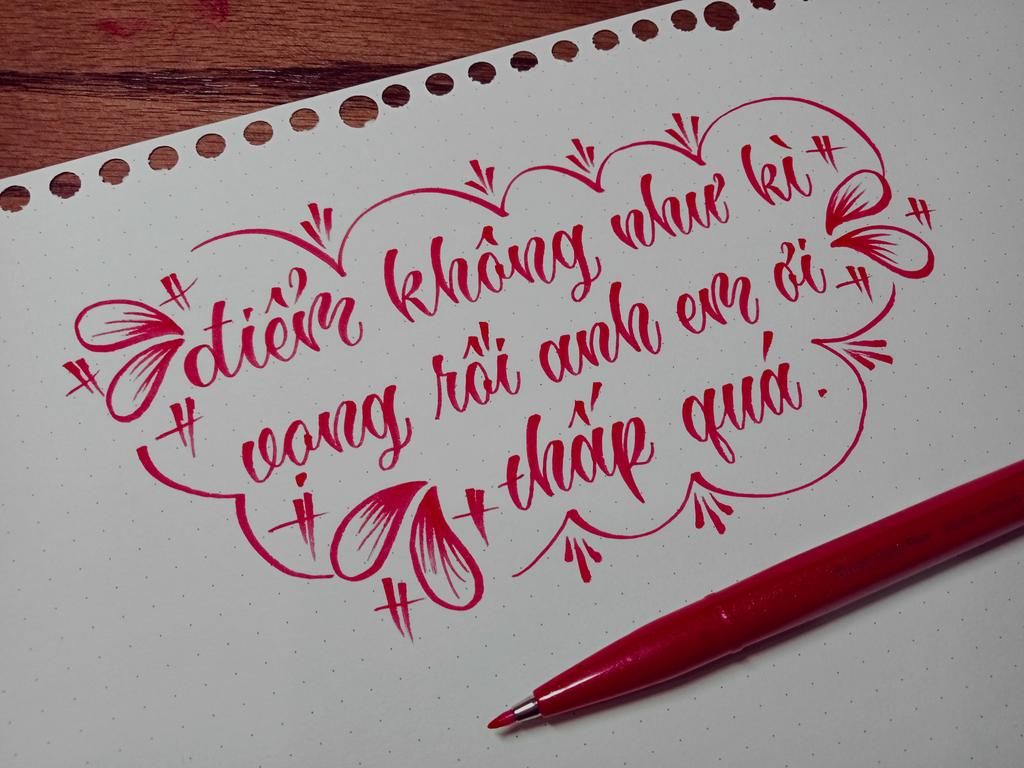 điểm không như kì
vọng rồi anh em ơi
thấp quá.